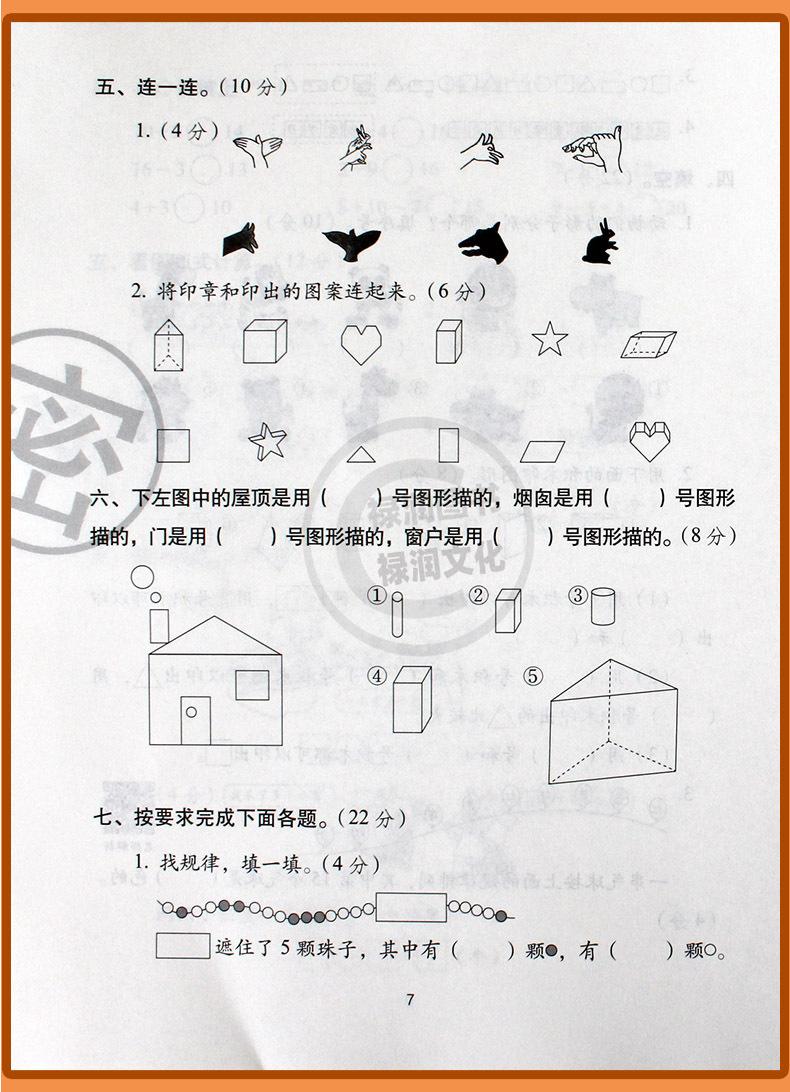 五、连一连。(10分)
1. (4分)
2. 将印章和印出的图案连起来。(6分)
六、下左图中的屋顶是用(　　)号图形描的，烟囱是用(　　)号图形
描的，门是用(　　)号图形描的，窗户是用(　　)号图形描的。(8分)
① ② ③
④ ⑤
七、按要求完成下面各题。(22分)
1. 找规律，填一填。(4分)
遮住了5颗珠子，其中有(　　)颗●，有(　　)颗○。
7
密
禄润图书
禄润文化